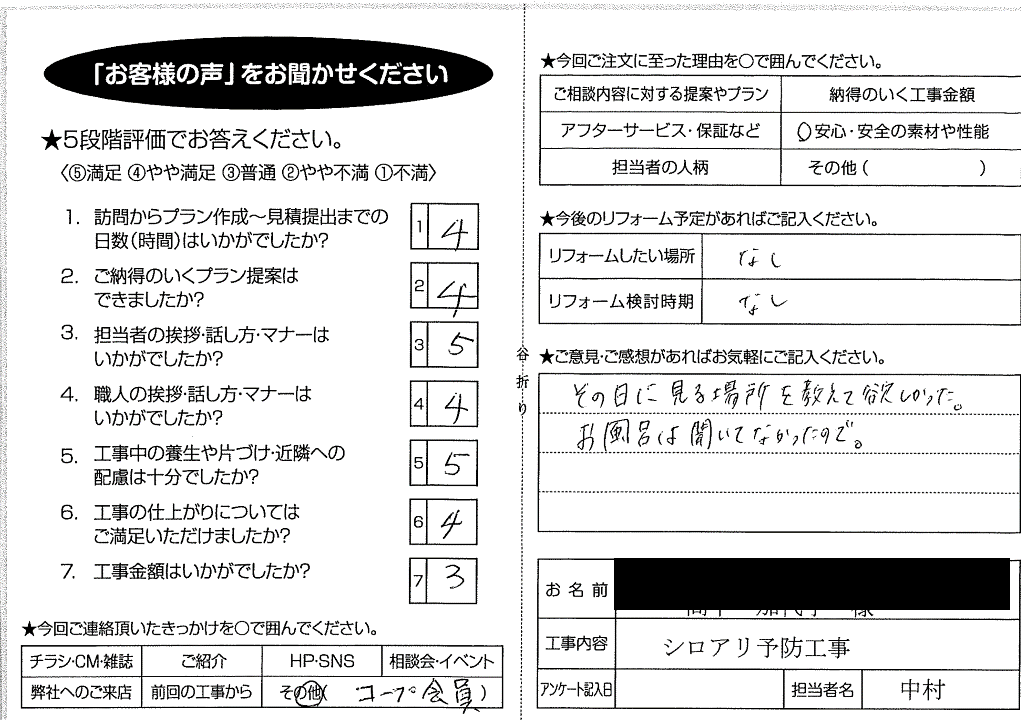 「お客様の声」をお聞かせください
★5段階評価でお答えください。
〈⑤満足 ④やや満足 ③普通 ②やや不満 ①不満〉
1. 訪問からプラン作成～見積提出までの
日数(時間)はいかがでしたか?
1 4
2. ご納得のいくプラン提案は
できましたか?
2 4
3. 担当者の挨拶・話し方・マナーは
いかがでしたか?
3 5
4. 職人の挨拶・話し方・マナーは
いかがでしたか?
4 4
5. 工事中の養生や片づけ・近隣への
配慮は十分でしたか?
5 5
6. 工事の仕上がりについては
ご満足いただけましたか?
6 4
7. 工事金額はいかがでしたか?
7 3
★今回ご連絡頂いたきっかけを○で囲んでください。
チラシ・CM・雑誌 ご紹介 HP・SNS 相談会・イベント
弊社へのご来店 前回の工事から その他( コープ会員 )
谷折り
★今回ご注文に至った理由を○で囲んでください。
ご相談内容に対する提案やプラン 納得のいく工事金額
アフターサービス・保証など ○安心・安全の素材や性能
担当者の人柄 その他( )
★今後のリフォーム予定があればご記入ください。
リフォームしたい場所 なし
リフォーム検討時期 なし
★ご意見・ご感想があればお気軽にご記入ください。
その日に見る場所を教えて欲しかった。
お風呂は聞いてなかったので。
お名前 様
工事内容 シロアリ予防工事
アンケート記入日 担当者名 中村